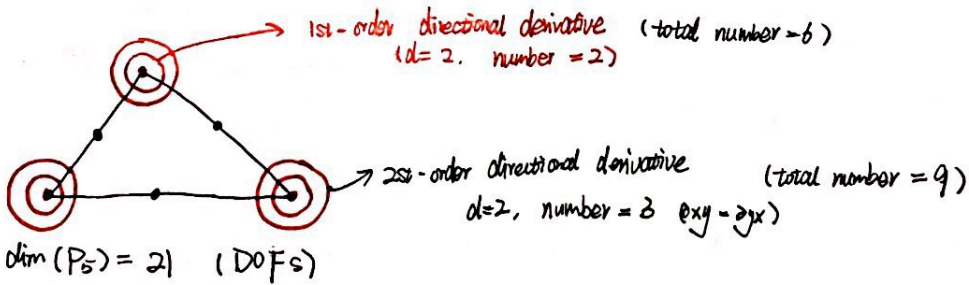 1st-order directional derivative (total number=6)
(d=2. number=2)
2st-order directional derivative (total number=9)
d=2, number=3 (∂xy=∂yx)
dim(P₅)=21 (DOFs)